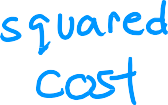 squared
cost